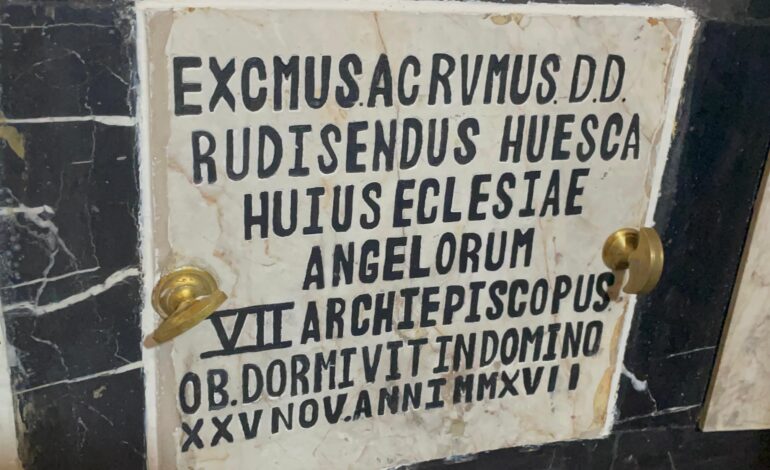 EXCMUS.AC RVMUS.D.D.
RUDISENDUS HUESCA
HUIUS ECLESIAE
ANGELORUM
VII ARCHIEPISCOPUS
OB.DORMIVIT IN DOMINO
XXV NOV.ANNI MMXVII